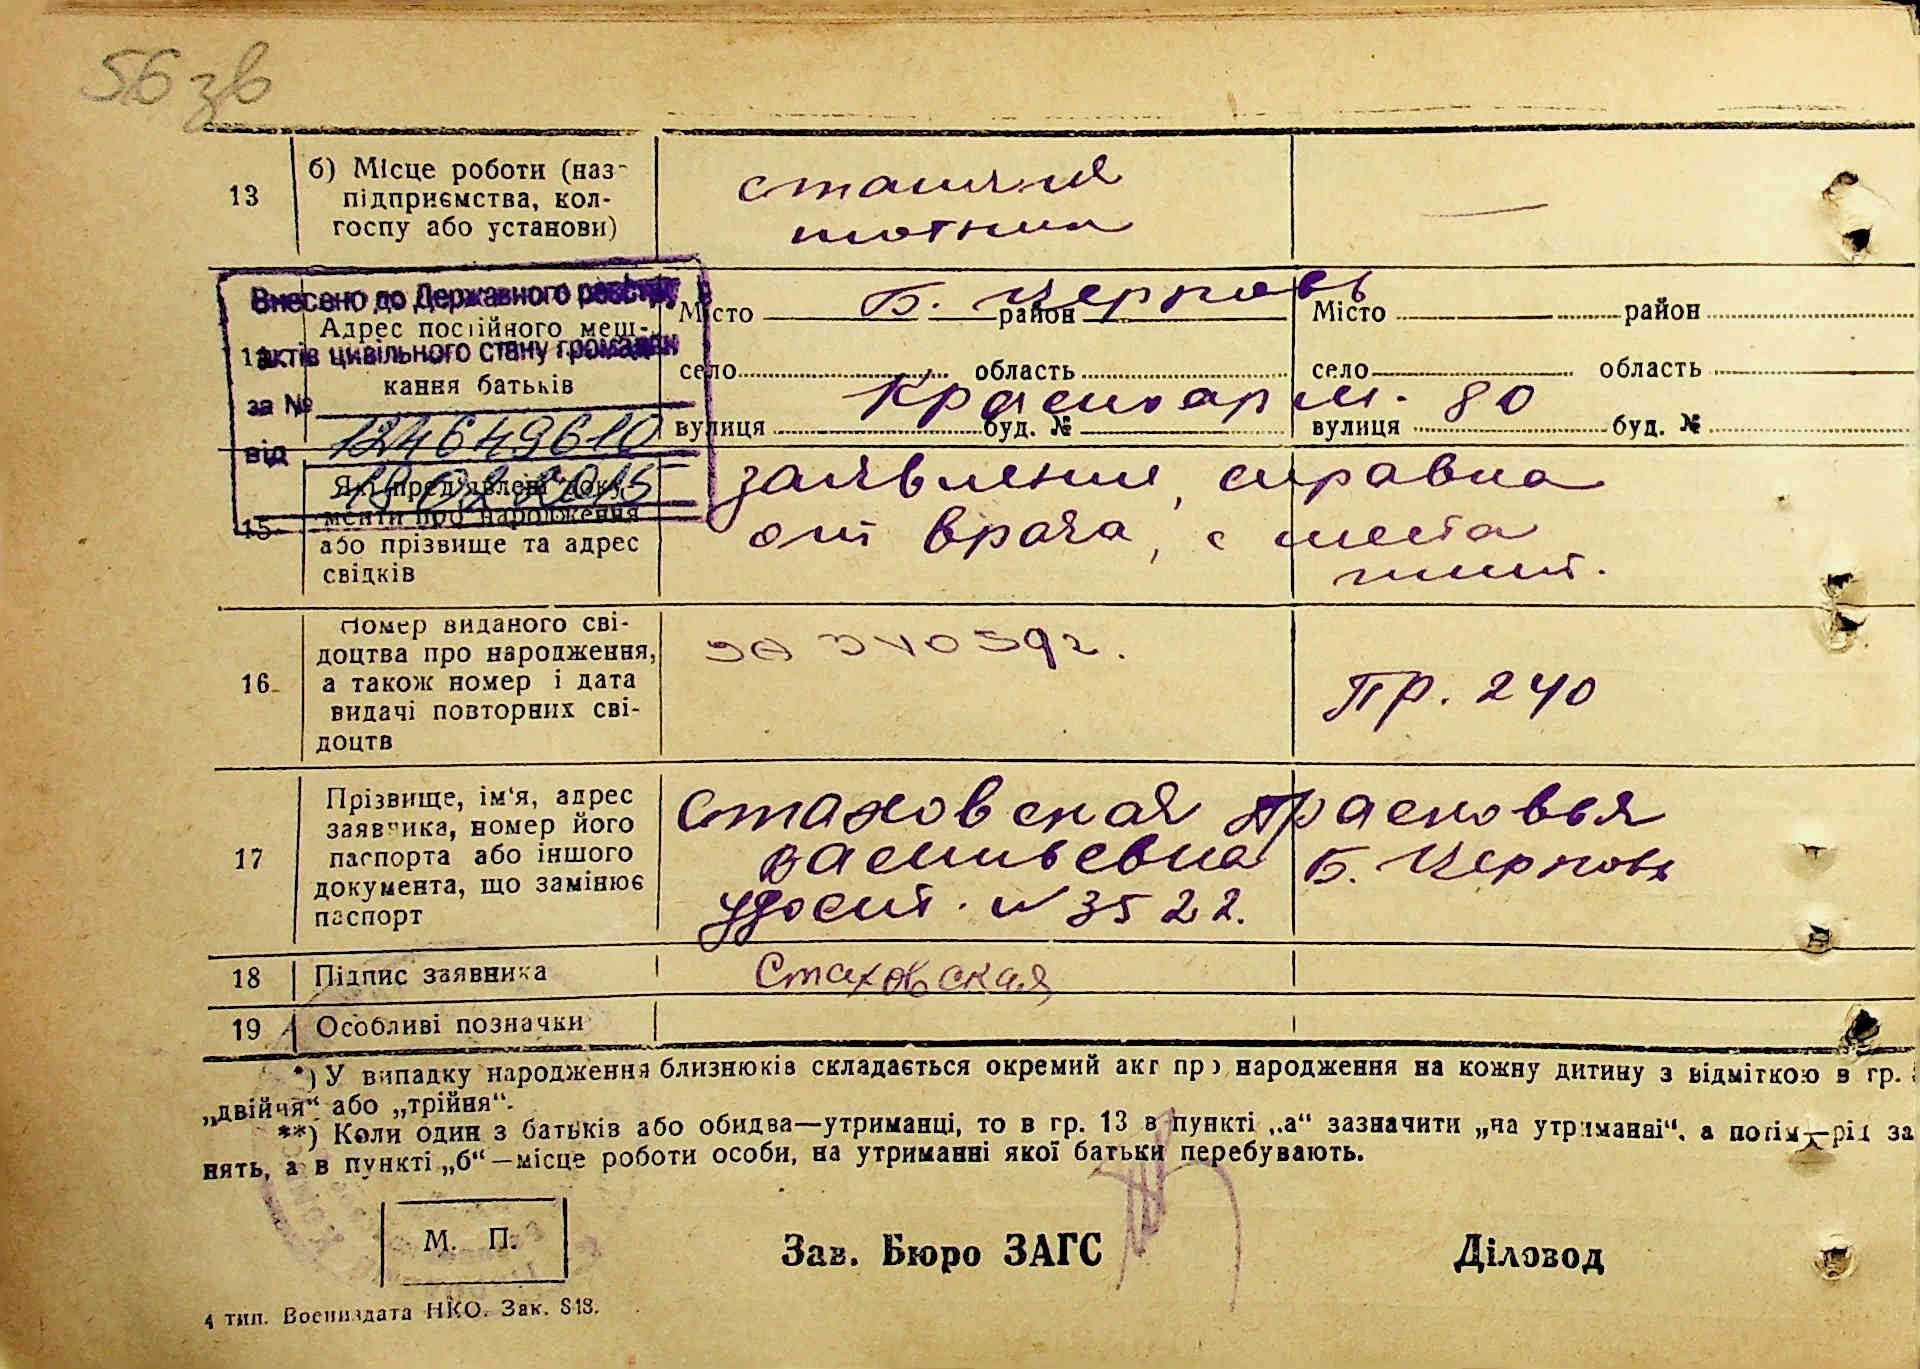 56 зв
13
б) Місце роботи (наз-
підприємства, кол-
госпу або установи)
станция
—
Внесено до Державного реєстру
актів цивільного стану громадян
за № 124649610
від
Адрес постійного меш-
кання батьків
Б. Церковь
Місто район
село область
Красноарм. 80
вулиця буд. №
Місто район
село область
вулиця буд. №
15
Які пред'явлені доку-
менти про народження
або прізвище та адрес
свідків
заявление, справка
от врача, с места
жит.
16
Номер виданого сві-
доцтва про народження,
а також номер і дата
видачі повторних сві-
доцтв
Пр. 240
17
Прізвище, ім'я, адрес
заявника, номер його
паспорта або іншого
документа, що замінює
паспорт
Стаховская Прасковья
Васильевна Б. Церковь
удост. № 3522.
18
Підпис заявника
Стаховская
19
Особливі позначки
*) У випадку народження близнюків складається окремий акт про народження на кожну дитину з відміткою в гр.
„двійня“ або „трійня“.
**) Коли один з батьків або обидва—утриманці, то в гр. 13 в пункті „а“ зазначити „на утриманні“, а потім—рід за
нять, а в пункті „б“—місце роботи особи, на утриманні якої батьки перебувають.
М. П.
Зав. Бюро ЗАГС
Діловод
4 тип. Воениздата НКО. Зак. 818.